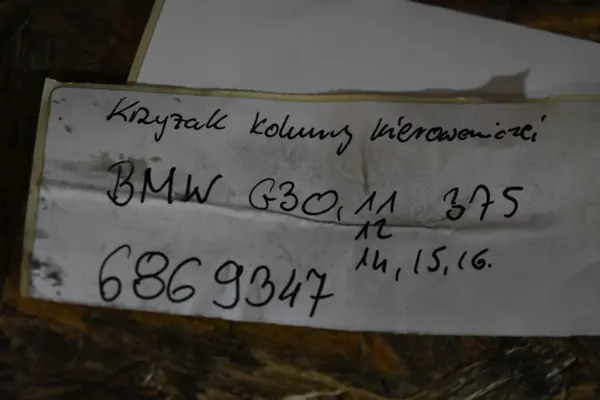 Krzyżak kolumny kierowniczej
BMW G30, 11 375
12
14, 15, 16.
6869347